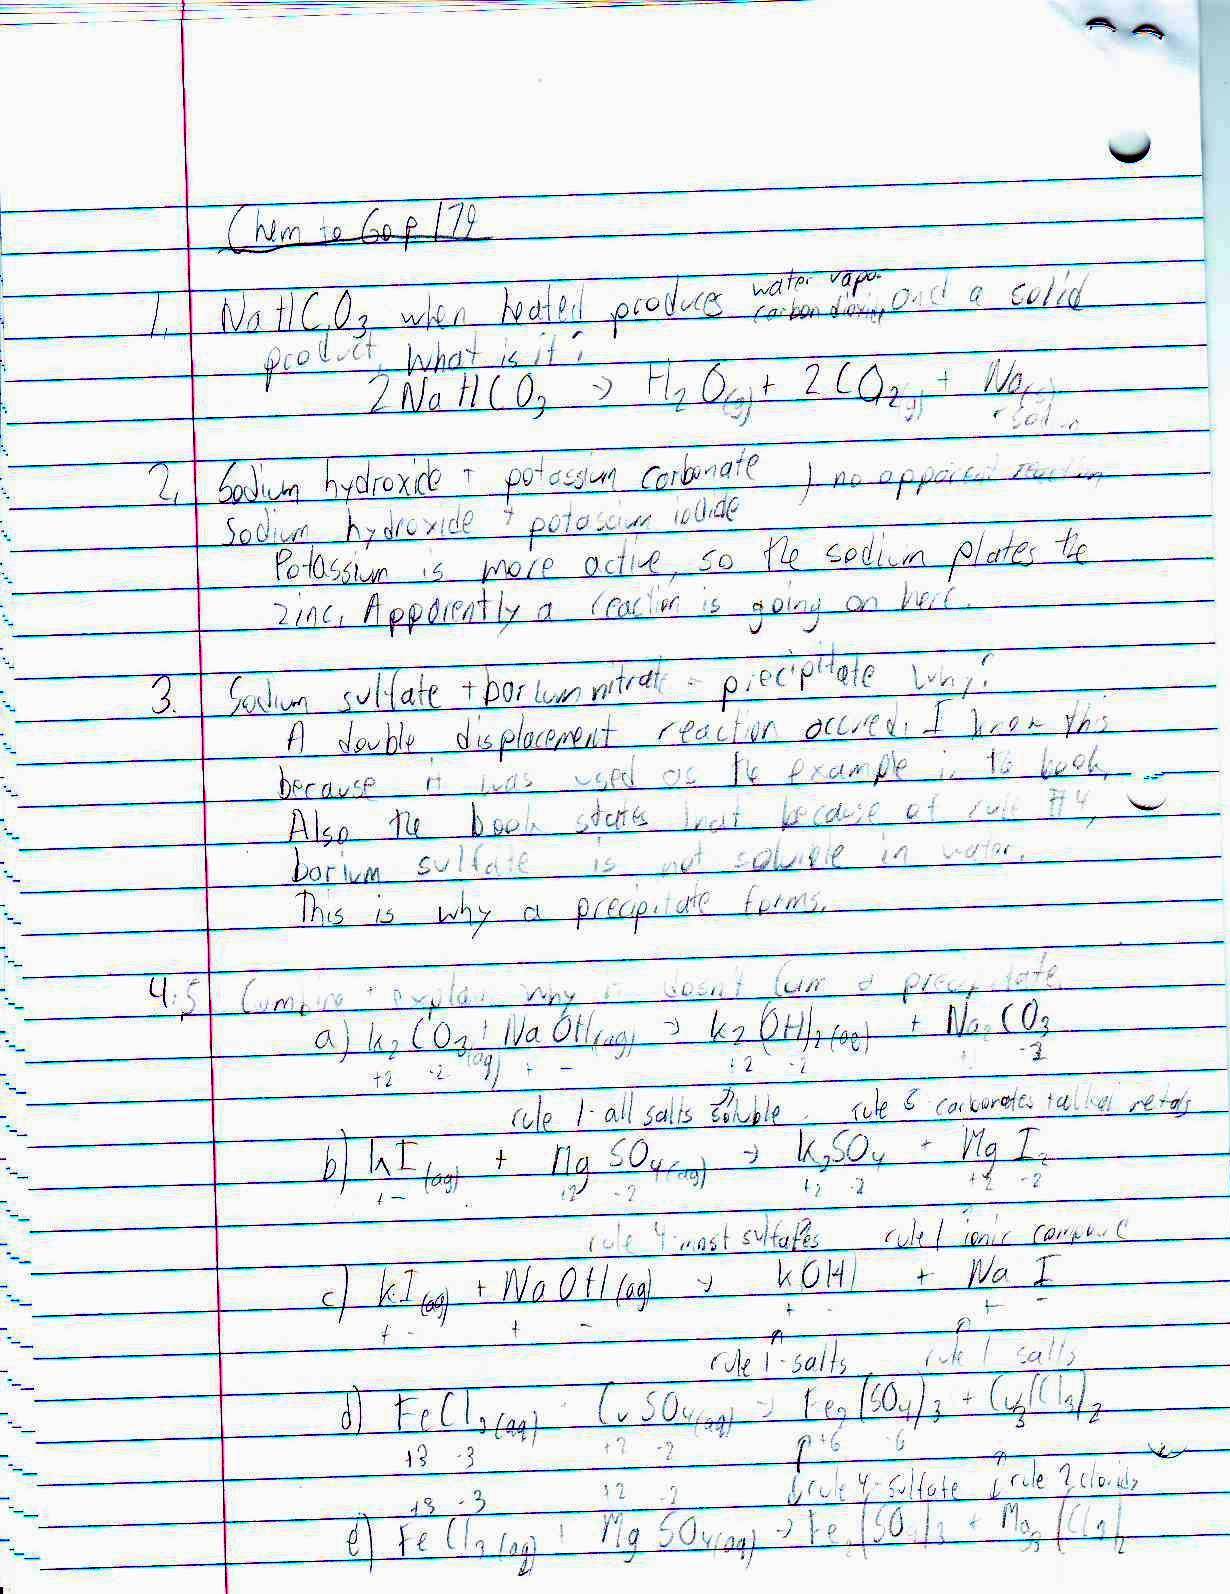 Chem to Go p 179
1. NaHCO3 when heated produces water vapor carbon dioxide and a solid
product. What is it?
2NaHCO3 → H2O(g) + 2CO2(g) + Na(s)
2. Sodium hydroxide + potassium carbonate } no apparent reaction
Sodium hydroxide + potassium iodide
Potassium is more active, so the sodium plates the
zinc. Apparently a reaction is going on here.
3. Sodium sulfate + barium nitrate = precipitate Why?
A double displacement reaction occured. I know this
because it was used as the example in the book.
Also the book states that because of rule #4,
barium sulfate is not soluble in water.
This is why a precipitate forms.
4.5 Combine + explain why it doesn't form a precipitate.
a) K2CO3(aq) + NaOH(aq) → K2(OH)2(aq) + Na2CO3
+2 -2 + - +2 -2 -2
rule 1-all salts soluble. rule 5 carbonates + alkali metals
b) KI(aq) + MgSO4(aq) → K2SO4 + MgI2
+ - +2 -2 +2 -2 +2 -2
rule 4-most sulfates rule 1 ionic
c) KI(aq) + NaOH(aq) → KOH + NaI
+ - + - + - + -
rule 1-salts rule 1 salts
d) FeCl3(aq) + CuSO4(aq) → Fe2(SO4)3 + Cu3(Cl3)2
+3 -3 +2 -2 +6 -6
rule 4-sulfate rule 2
+3 -3 +2 -2
e) FeCl3(aq) + MgSO4(aq) → Fe2(SO4)3 + Mg3(Cl3)2